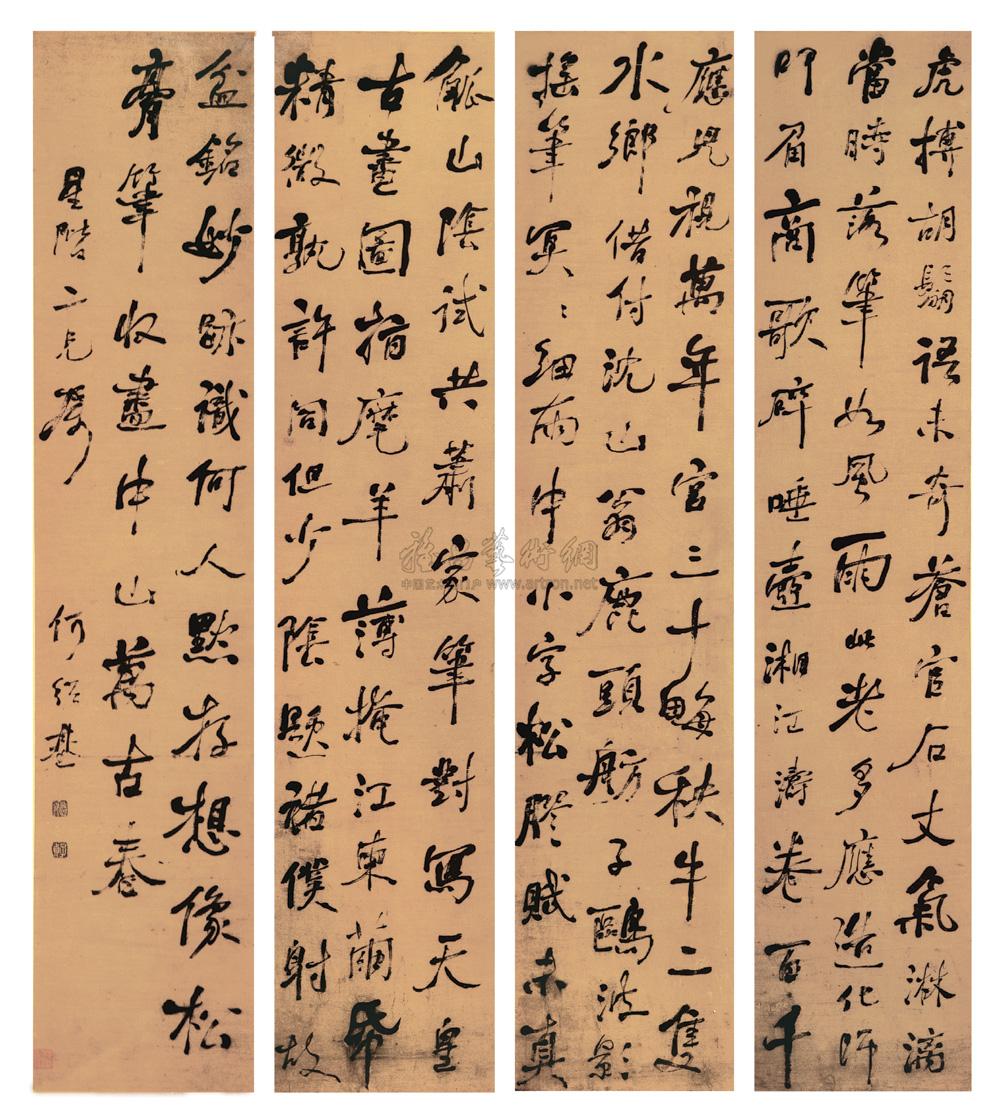 虎搏胡語未奇蒼官石丈氣淋漓
當時落筆如風雨此老多應造化師
叩商歌碎唾壺湘江濤卷百千
應兒視萬年官三十畝秧牛二隻
水鄉借付沈山翁鹿頭舫子鷗波影
搖筆冥〻細雨中小字松醪賦未真
觚山陰試共蕭家筆對寫天皇
古畫圖指麾羊薄掩江東繭帋
精微孰許同但少陰題褚僕射故
盆銘妙跡識何人黙存想像松
膏筆收盡中山萬古春
星階二兄屬
何紹基
雅昌藝術網
www.artron.net